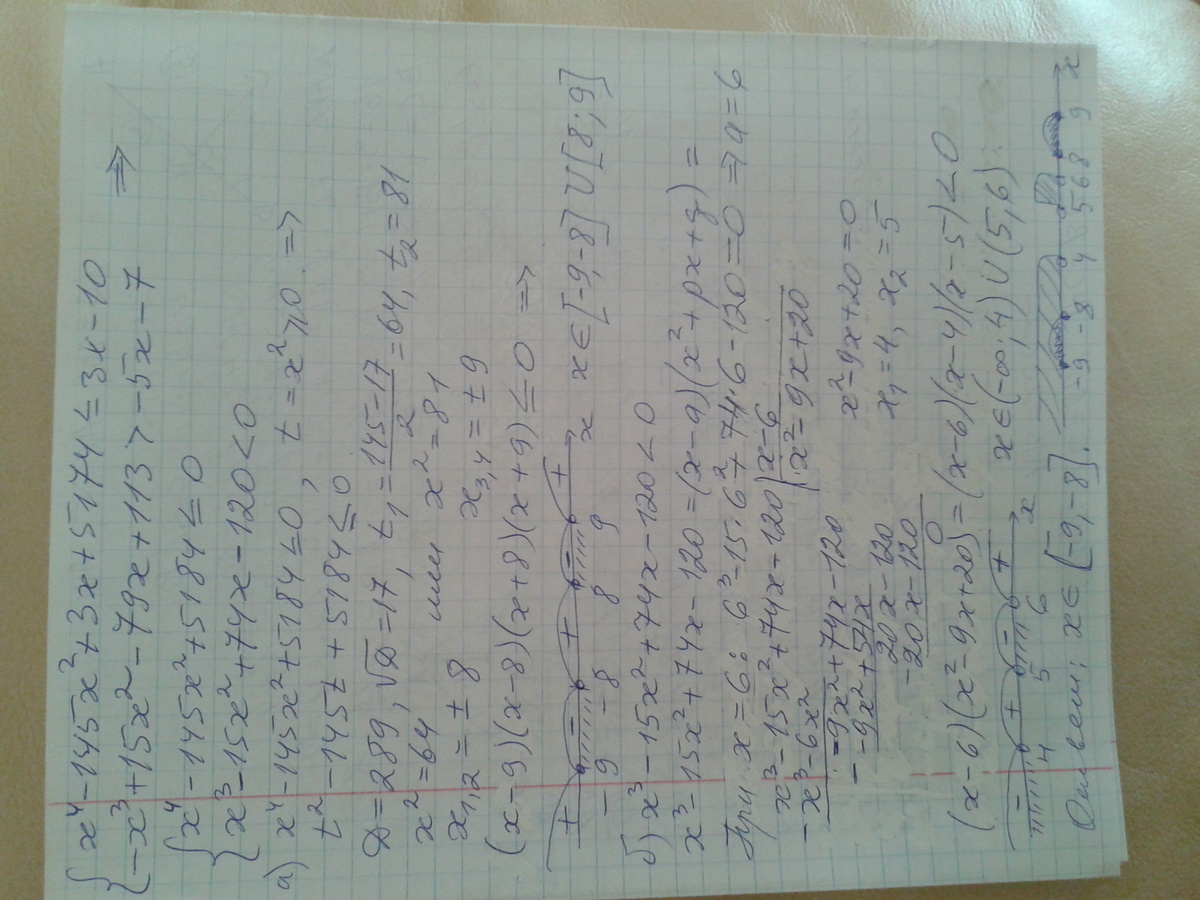 { x⁴-145x²+3x+5174 ≤ 3x-10
-x³+15x²-79x+113 > -5x-7 ⇒
{ x⁴-145x²+5184 ≤ 0
x³-15x²+74x-120 < 0
а) x⁴-145x²+5184 ≤ 0, t=x² ≥ 0 ⇒
t²-145t+5184 ≤ 0
D=289, √D=17, t₁=(145-17)/2=64, t₂=81
x²=64 или x²=81
x₁,₂=±8 x₃,₄=±9
(x-9)(x-8)(x+8)(x+9) ≤ 0 ⇒
+ - + - +
-9 -8 8 9 x x∈[-9,-8]∪[8;9]
б) x³-15x²+74x-120 < 0
x³-15x²+74x-120=(x-a)(x²+px+q)=
При x=6: 6³-15·6²+74·6-120=0 ⇒ a=6
x³-15x²+74x-120 | x-6
-x³-6x² | x²-9x+20
-9x²+74x-120
- -9x²+54x x²-9x+20=0
20x-120 x₁=4, x₂=5
-20x-120
0
(x-6)(x²-9x+20)=(x-6)(x-4)(x-5)<0
- + - +
4 5 6 x x∈(-∞;4)∪(5,6)
Ответ: x∈[-9,-8]. -9 -8 4 5 6 8 9 x